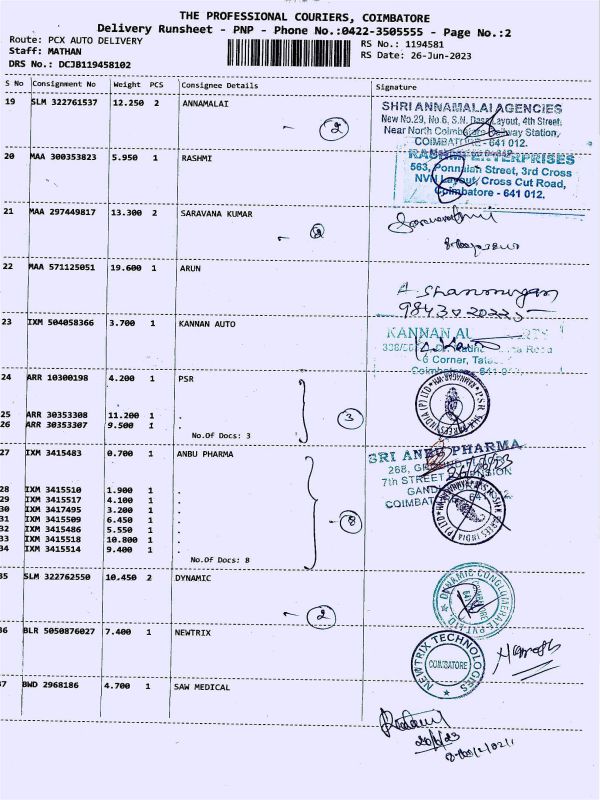 THE PROFESSIONAL COURIERS, COIMBATORE
Delivery Runsheet - PNP - Phone No.:0422-3505555 - Page No.:2
Route: PCX AUTO DELIVERY
Staff: MATHAN
DRS No.: DCJB119458102
RS No.: 1194581
RS Date: 26-Jun-2023
S No Consignment No Weight PCS Consignee Details Signature
19 SLM 322761537 12.250 2 ANNAMALAI
2
SHRI ANNAMALAI AGENCIES
New No.29, No.6, S.N. Layout, 4th Street,
Near North Coimbatore Railway Station,
COIMBATORE - 641 012.
20 MAA 300353823 5.950 1 RASHMI
RASHMI ENTERPRISES
563, Ponnaian Street, 3rd Cross
NVN Layout, Cross Cut Road,
Coimbatore - 641 012.
21 MAA 297449817 13.300 2 SARAVANA KUMAR
2
22 MAA 571125051 19.600 1 ARUN
A. Shanmugam
23 IXM 504058366 3.700 1 KANNAN AUTO
KANNAN
Corner,
24 ARR 10300198 4.200 1 PSR
25 ARR 30353308 11.200 1 .
26 ARR 30353307 9.500 1 .
No.Of Docs: 3
3
27 IXM 3415483 0.700 1 ANBU PHARMA
SRI ANBU PHARMA
268,
7th STREET
COIMBATORE
28 IXM 3415510 1.900 1 .
29 IXM 3415517 4.100 1 .
30 IXM 3417495 3.200 1 .
31 IXM 3415509 6.450 1 .
32 IXM 3415486 5.550 1 .
33 IXM 3415518 10.800 1 .
34 IXM 3415514 9.400 1 .
No.Of Docs: 8
8
35 SLM 322762550 10.450 2 DYNAMIC
2
DYNAMIC CONGLOMERATE PVT LTD
36 BLR 5050876027 7.400 1 NEWTRIX
NEWTRIX TECHNOLOGIES
COIMBATORE
37 BWD 2968186 4.700 1 SAW MEDICAL